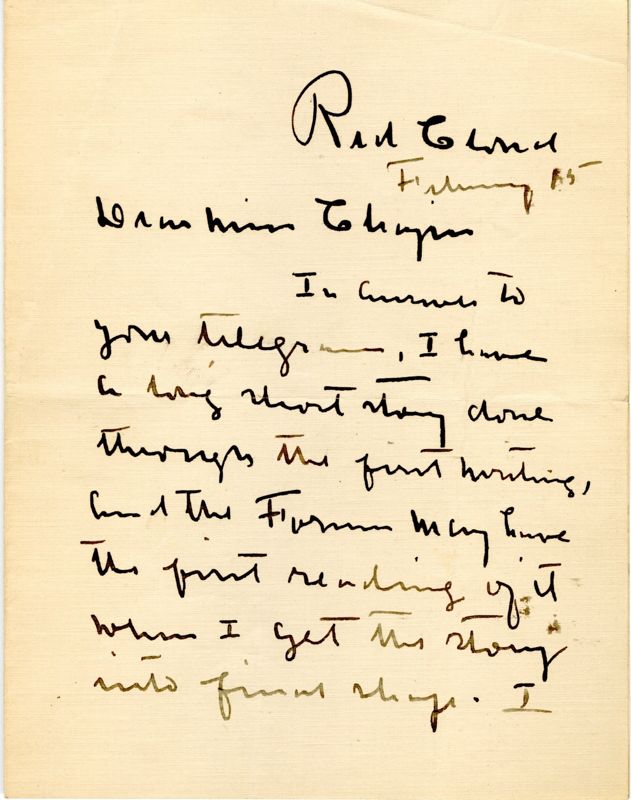 Red Cloud
February 15
Dear Miss Chapin
In answer to
your telegram, I have
a long short story done
through the first writing,
and the Forum may have
the first reading of it
when I get the story
into final shape. I